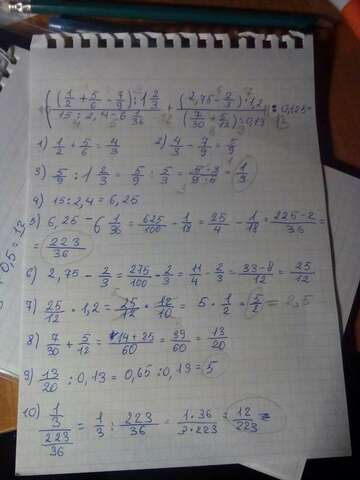 ( ((1/2 + 5/6 - 7/9) : 1 2/3) / (15 : 2,4 - 6 1/36) + ((2,75 - 2/3) · 1,2) / ((7/30 + 5/12) : 0,13) ) : 0,125=
1) 1/2 + 5/6 = 4/3 2) 4/3 - 7/9 = 5/9
3) 5/9 : 1 2/3 = 5/9 : 5/3 = 5·3/9·5 = 1/3
4) 15 : 2,4 = 6,25
5) 6,25 - 6 1/36 = 625/100 - 1/18 = 25/4 - 1/18 = 225-2/36 =
= 223/36
6) 2,75 - 2/3 = 275/100 - 2/3 = 11/4 - 2/3 = 33-8/12 = 25/12
7) 25/12 · 1,2 = 25/12 · 12/10 = 5 · 1/2 = 5/2 = 2,5
8) 7/30 + 5/12 = 14+25/60 = 39/60 = 13/20
9) 13/20 : 0,13 = 0,65 : 0,13 = 5
10) 1/3 / 223/36 = 1/3 : 223/36 = 1·36/3·223 = 12/223 =